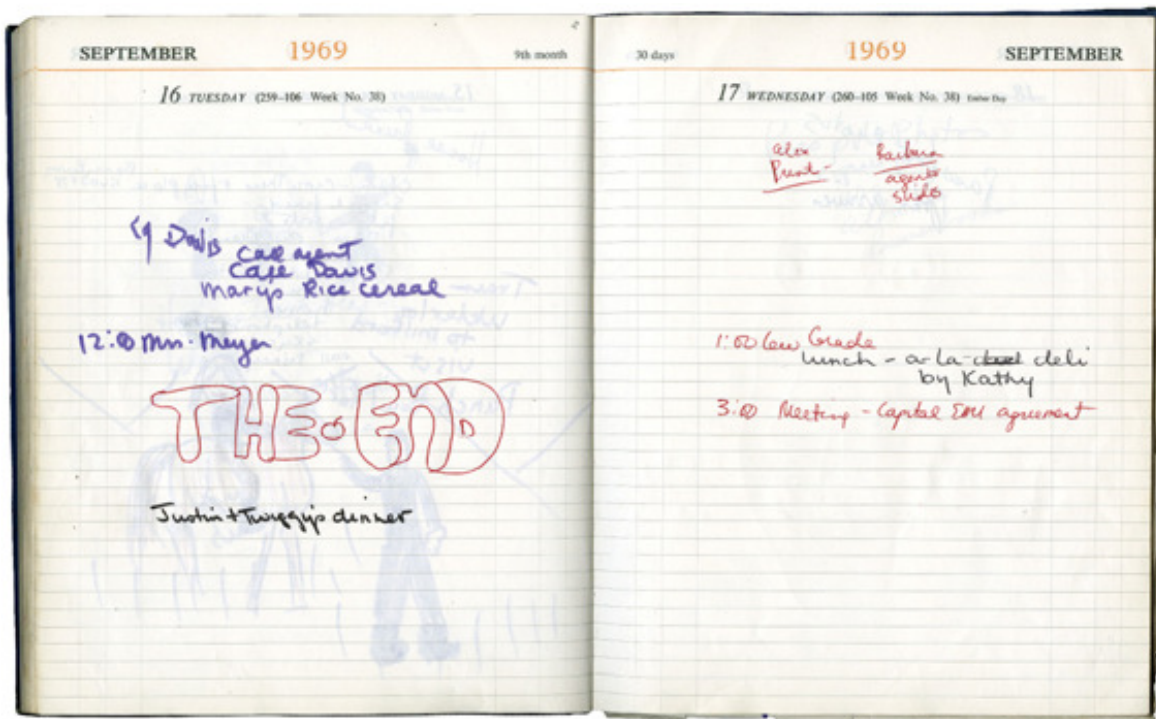 SEPTEMBER 1969 9th month
16 TUESDAY (259–106 Week No. 38)
Davis Call agent
Call Davis
Mary's Rice Cereal
12:00 Mrs. Meyer
THE END
Justin + Twiggy's dinner
30 days 1969 SEPTEMBER
17 WEDNESDAY (260–105 Week No. 38) Ember Day
alex Barbara
Print – agents
slides
1:00 Lew Grade
lunch – a-la- deli
by Kathy
3:00 Meeting – Capital EMI agreement